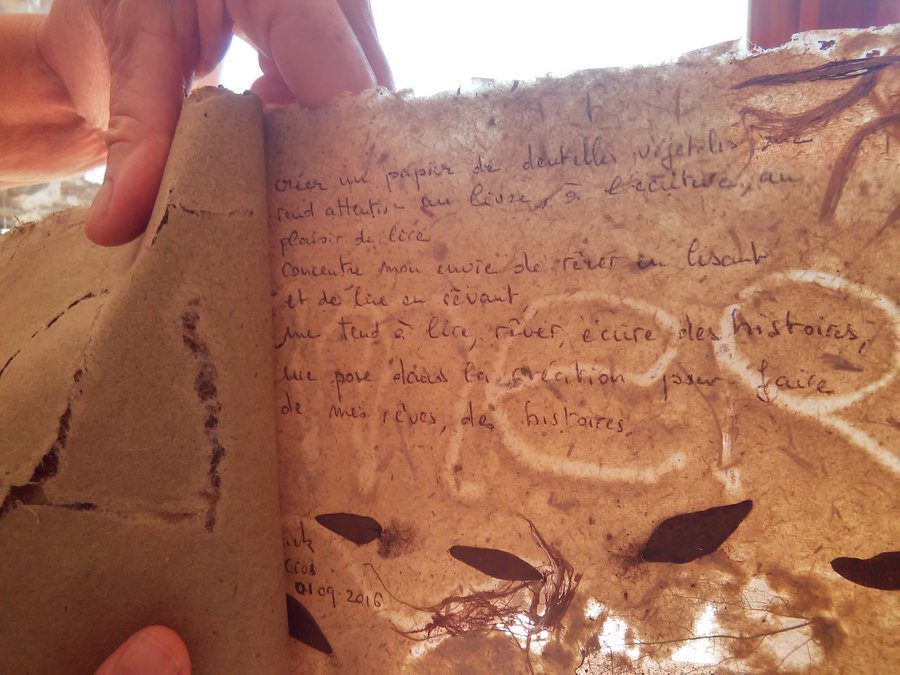 créer un papier de dentelles végétales me
rend attentive au livre, à l'écriture, au
plaisir de lire
concentre mon envie de rêver en lisant
et de lire en rêvant
me tend à lire, rêver, écrire des histoires,
me pose dans la création pour faire
de mes rêves, des histoires.
MER
Cros
01.09.2016